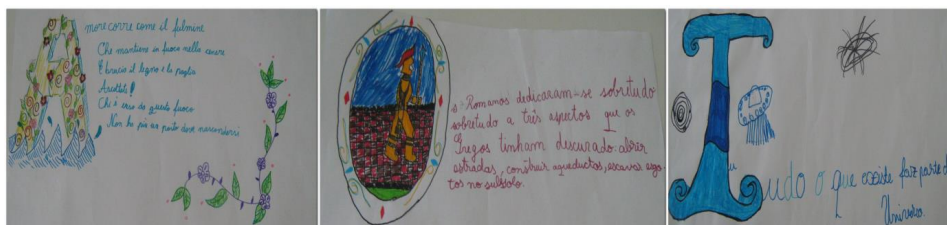 Amore corre come il fulmine
Che mantiene in fuoco nella cenere
E brucia il legno e la paglia
Ascolta!
Chi è arso da questo fuoco
Non ha più un posto dove nascondersi
Os Romanos dedicaram-se sobretudo
sobretudo a três aspectos que os
Gregos tinham descurado: abrir
estradas, construir aqueductos, escavar esgo
tos no subsolo.
Tudo o que existe faz parte d
Universo.